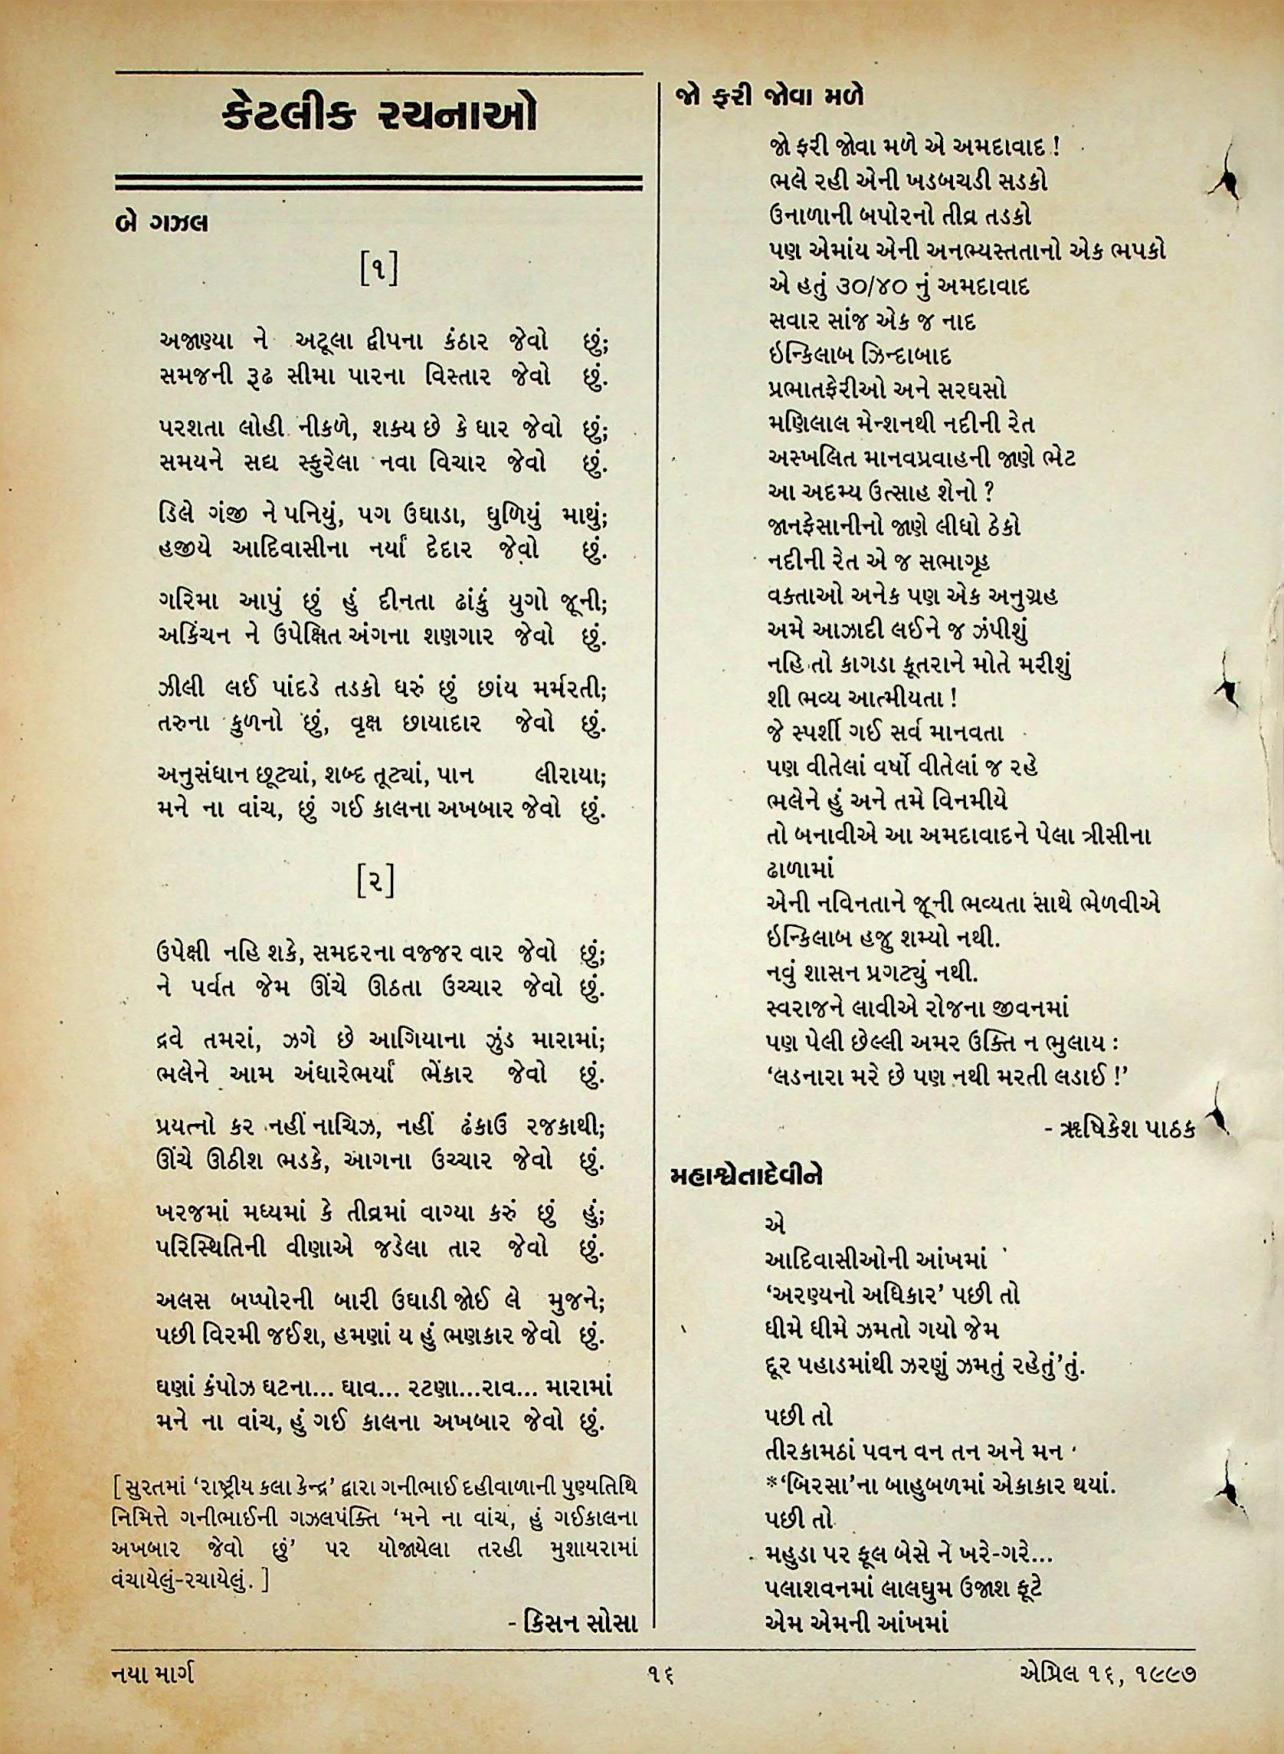 કેટલીક રચનાઓ
બે ગઝલ
[૧]
અજાણ્યા ને અટૂલા દ્વીપના કંઠાર જેવો છું;
સમજની રૂઢ સીમા પારના વિસ્તાર જેવો છું.
પરશતા લોહી નીકળે, શક્ય છે કે ધાર જેવો છું;
સમયને સદ્ય સ્ફુરેલા નવા વિચાર જેવો છું.
ડિલે ગંજી ને પનિયું, પગ ઉઘાડા, ધુળિયું માથું;
હજીયે આદિવાસીના નર્યાં દેદાર જેવો છું.
ગરિમા આપું છું હું દીનતા ઢાંકું યુગો જૂની;
અકિંચન ને ઉપેક્ષિત અંગના શણગાર જેવો છું.
ઝીલી લઈ પાંદડે તડકો ધરું છું છાંય મર્મરતી;
તરુના કુળનો છું, વૃક્ષ છાયાદાર જેવો છું.
અનુસંધાન છૂટ્યાં, શબ્દ તૂટ્યાં, પાન લીરાયા;
મને ના વાંચ, છું ગઈ કાલના અખબાર જેવો છું.
[૨]
ઉપેક્ષી નહિ શકે, સમદરના વજ્જર વાર જેવો છું;
ને પર્વત જેમ ઊંચે ઊઠતા ઉચ્ચાર જેવો છું.
દ્રવે તમરાં, ઝગે છે આગિયાના ઝુંડ મારામાં;
ભલેને આમ અંધારેભર્યાં ભેંકાર જેવો છું.
પ્રયત્નો કર નહીં નાચિઝ, નહીં ઢંકાઉ રજકાથી;
ઊંચે ઊઠીશ ભડકે, આગના ઉચ્ચાર જેવો છું.
ખરજમાં મધ્યમાં કે તીવ્રમાં વાગ્યા કરું છું હું;
પરિસ્થિતિની વીણાએ જડેલા તાર જેવો છું.
અલસ બપ્પોરની બારી ઉઘાડી જોઈ લે મુજને;
પછી વિરમી જઈશ, હમણાં ય હું ભણકાર જેવો છું.
ઘણાં કંપોઝ ઘટના... ઘાવ... રટણા...રાવ... મારામાં
મને ના વાંચ, હું ગઈ કાલના અખબાર જેવો છું.
[ સુરતમાં ‘રાષ્ટ્રીય કલા કેન્દ્ર’ દ્વારા ગનીભાઈ દહીવાળાની પુણ્યતિથિ
નિમિત્તે ગનીભાઈની ગઝલપંક્તિ ‘મને ના વાંચ, હું ગઈકાલના
અખબાર જેવો છું’ પર યોજાયેલા તરહી મુશાયરામાં
વંચાયેલું-રચાયેલું. ]
- કિસન સોસા
જો ફરી જોવા મળે
જો ફરી જોવા મળે એ અમદાવાદ !
ભલે રહી એની ખડબચડી સડકો
ઉનાળાની બપોરનો તીવ્ર તડકો
પણ એમાંય એની અનભ્યસ્તતાનો એક ભપકો
એ હતું ૩૦/૪૦ નું અમદાવાદ
સવાર સાંજ એક જ નાદ
ઇન્કિલાબ ઝિન્દાબાદ
પ્રભાતફેરીઓ અને સરઘસો
મણિલાલ મેન્શનથી નદીની રેત
અસ્ખલિત માનવપ્રવાહની જાણે ભેટ
આ અદમ્ય ઉત્સાહ શેનો ?
જાનફેસાનીનો જાણે લીધો ઠેકો
નદીની રેત એ જ સભાગૃહ
વક્તાઓ અનેક પણ એક અનુગ્રહ
અમે આઝાદી લઈને જ ઝંપીશું
નહિ તો કાગડા કૂતરાને મોતે મરીશું
શી ભવ્ય આત્મીયતા !
જે સ્પર્શી ગઈ સર્વ માનવતા
પણ વીતેલાં વર્ષો વીતેલાં જ રહે
ભલેને હું અને તમે વિનમીયે
તો બનાવીએ આ અમદાવાદને પેલા ત્રીસીના
ઢાળામાં
એની નવિનતાને જૂની ભવ્યતા સાથે ભેળવીએ
ઇન્કિલાબ હજુ શમ્યો નથી.
નવું શાસન પ્રગટ્યું નથી.
સ્વરાજને લાવીએ રોજના જીવનમાં
પણ પેલી છેલ્લી અમર ઉક્તિ ન ભુલાય :
‘લડનારા મરે છે પણ નથી મરતી લડાઈ !’
- ઋષિકેશ પાઠક
મહાશ્વેતાદેવીને
એ
આદિવાસીઓની આંખમાં
‘અરણ્યનો અધિકાર’ પછી તો
ધીમે ધીમે ઝમતો ગયો જેમ
દૂર પહાડમાંથી ઝરણું ઝમતું રહેતું’તું.
પછી તો
તીરકામઠાં પવન વન તન અને મન
*‘બિરસા’ના બાહુબળમાં એકાકાર થયાં.
પછી તો
મહુડા પર ફૂલ બેસે ને ખરે-ગરે...
પલાશવનમાં લાલઘુમ ઉજાશ ફૂટે
એમ એમની આંખમાં
નયા માર્ગ
૧૬
એપ્રિલ ૧૬, ૧૯૯૭